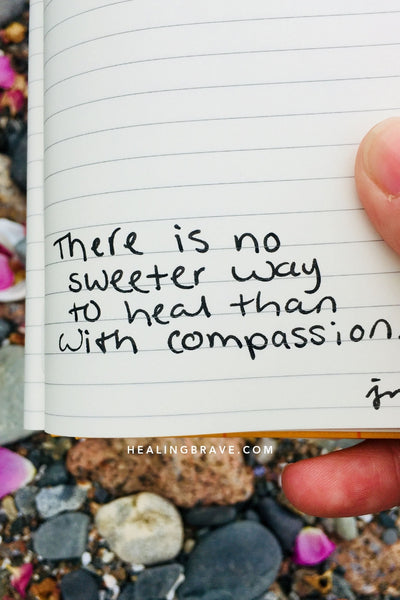 There is no
sweeter way
to heal than
with compassion.
HEALINGBRAVE.COM